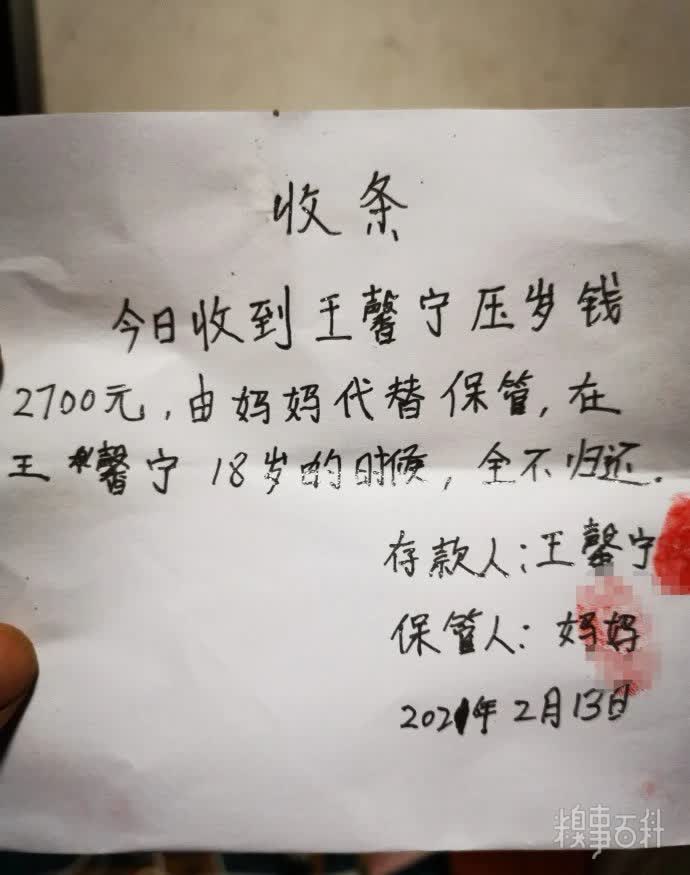 收条
今日收到王馨宁压岁钱
2700元,由妈妈代替保管,在
王馨宁18岁的时候,全不归还.
存款人:王馨宁
保管人:妈妈
2021年2月13日
糗事百科